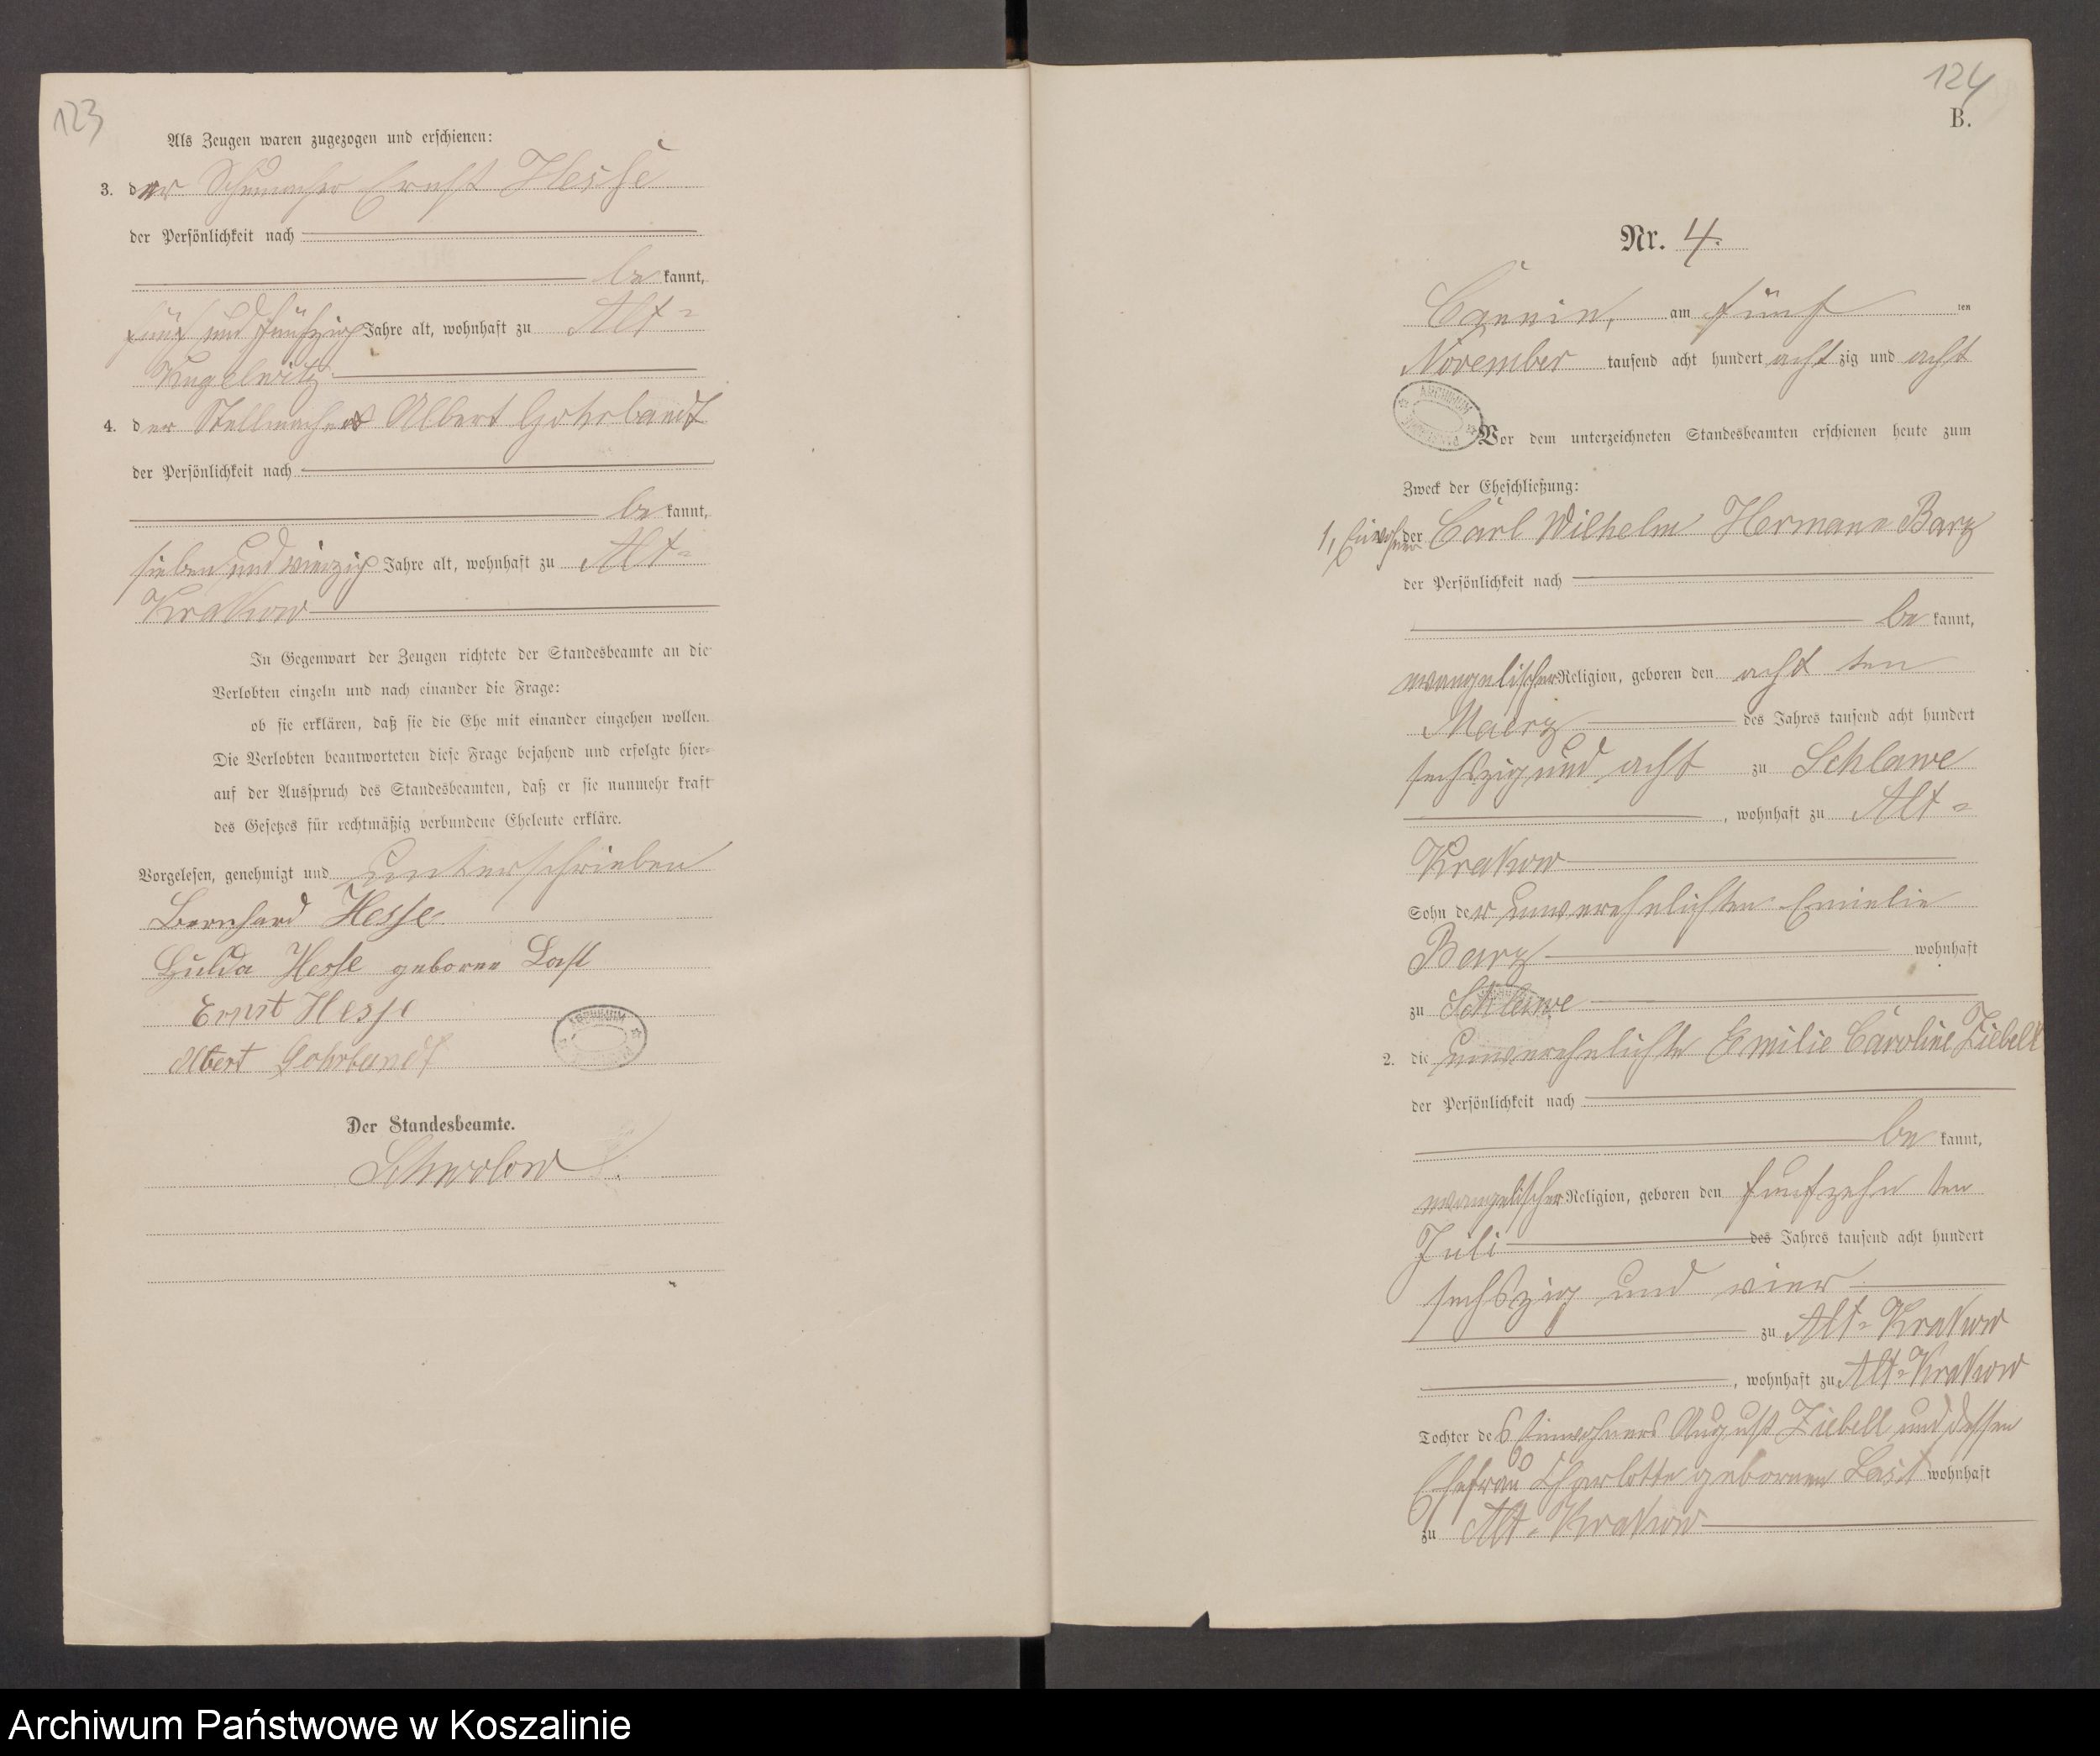 123
Als Zeugen waren zugezogen und erschienen:
3. der Schumacher Ernst Hesse
der Persönlichkeit nach
be kannt,
fünf und fünfzig Jahre alt, wohnhaft zu Alt-
Kugelwitz
4. der Stellmacher Albert Gohrbandt
der Persönlichkeit nach
be kannt,
sieben und vierzig Jahre alt, wohnhaft zu Alt-
Krakow
In Gegenwart der Zeugen richtete der Standesbeamte an die
Verlobten einzeln und nach einander die Frage:
ob sie erklären, daß sie die Ehe mit einander eingehen wollen.
Die Verlobten beantworteten diese Frage bejahend und erfolgte hier-
auf der Ausspruch des Standesbeamten, daß er sie nunmehr kraft
des Gesetzes für rechtmäßig verbundene Eheleute erkläre.
Vorgelesen, genehmigt und unterschrieben
Bernhard Hesse
Hulda Hesse geborne Last
Ernst Hesse
Albert Gohrbandt
ARCHIWUM
Der Standesbeamte.
Schwolow
124
B.
Nr. 4.
Cannin, am fünf ten
November tausend acht hundert acht zig und acht
ARCHIWUM
Vor dem unterzeichneten Standesbeamten erschienen heute zum
Zweck der Eheschließung:
1, Einwohner der Carl Wilhelm Hermann Barz
der Persönlichkeit nach
be kannt,
evangelischer Religion, geboren den acht ten
Maerz des Jahres tausend acht hundert
sechszig und acht zu Schlawe
, wohnhaft zu Alt-
Krakow
Sohn der unverehelichten Emilie
Barz wohnhaft
zu Schlawe
2. die unverehelichte Emilie Caroline Ziebell
der Persönlichkeit nach
be kannt,
evangelischer Religion, geboren den fünfzehn ten
Juli des Jahres tausend acht hundert
sechszig und vier
zu Alt-Krakow
, wohnhaft zu Alt-Krakow
Tochter des Einwohners August Ziebell und dessen
Ehefrau Charlotte gebornen Last wohnhaft
zu Alt-Krakow
Archiwum Państwowe w Koszalinie